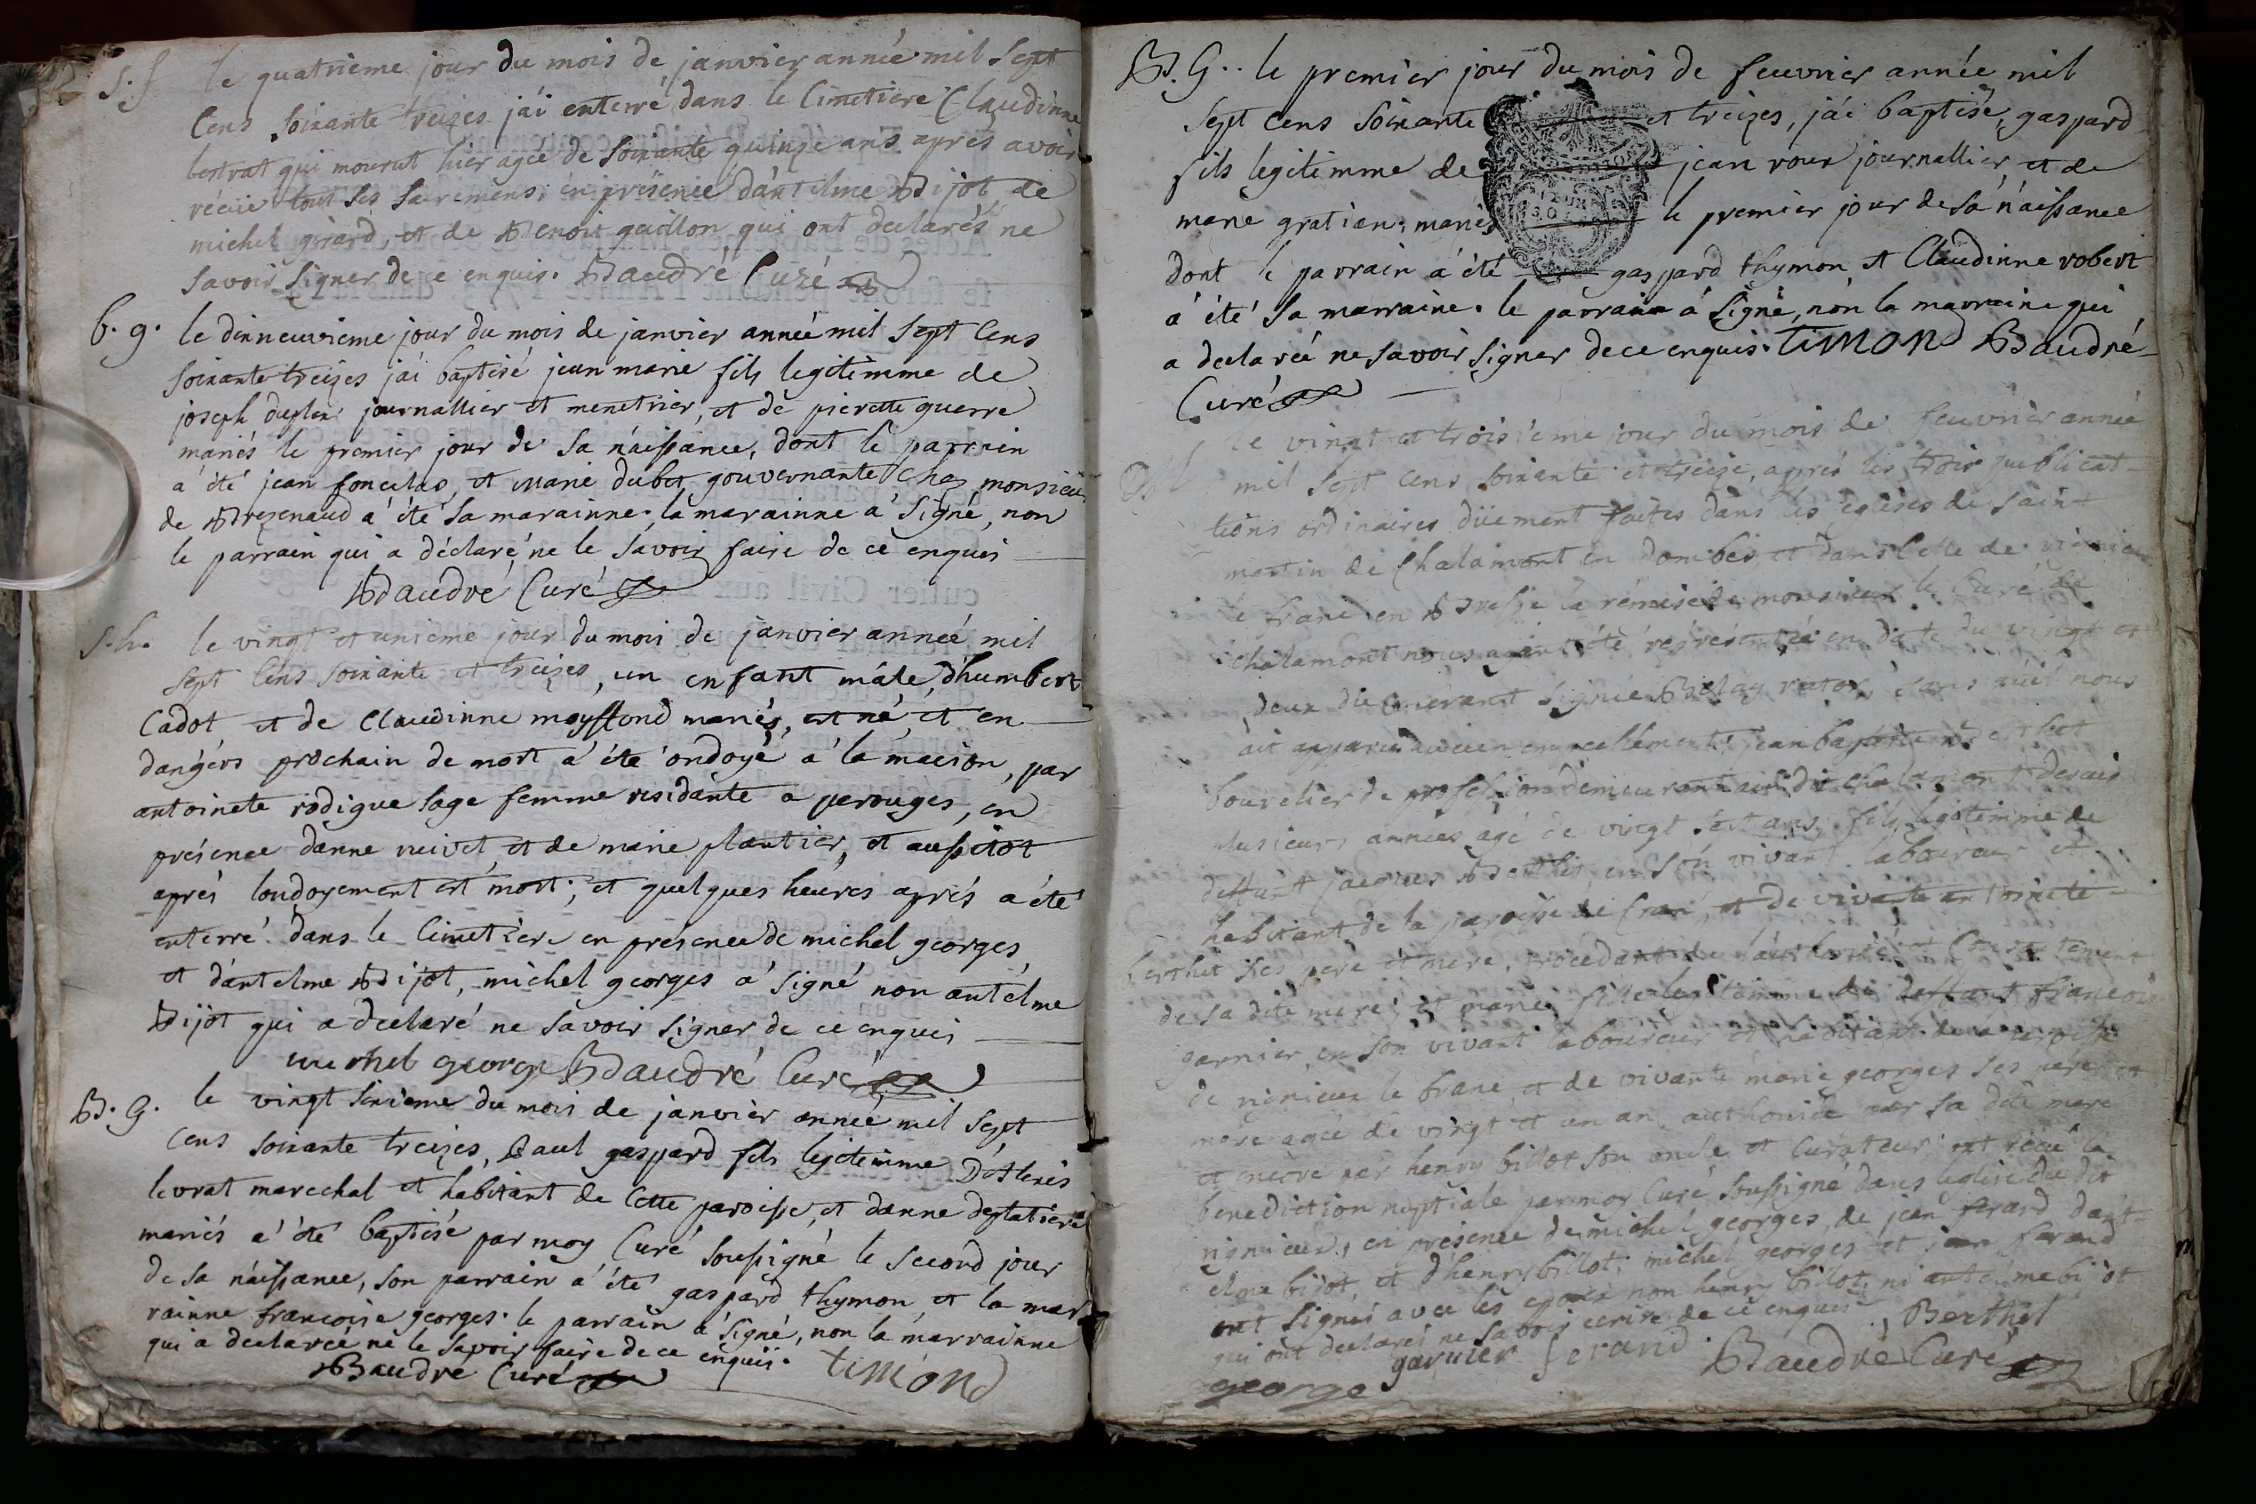 S. f le quatrieme jour du mois de janvier année mil sept
Cens soixante treizes jái enterré dans le Cimetiere Claudinne
bertrat qui mourut hier agée de soixante quinze ans aprés avoir
récüe tout ses sacremens; en présence dántelme Bijot de
michel girard, et de Benoit guillon, qui ont declarés ne
savoir signer de ce enquis. Baudré Curé
b. g. le dixneuvieme jour du mois de janvier année mil sept Cens
soixante treizes jái baptisé jean marie fils legitimme de
joseph duplex journallier et menetrier, et de pierette guerre
mariés le premier jour de sa náissance, dont le parrain
a été jean et marie dubet gouvernante chez monsieur
de Brezenaud a été sa marainne. la marainne a signé, non
le parrain qui a déclaré ne le savoir faire de ce enquis
Baudré Curé
S. h. le vingt et unieme jour du mois de janvier année mil
sept Cens soixante et treizes, un enfant mále, d'humbert
Cadot et de Claudinne mariés, est né, et en
dangérs prochain de mort a été ondoyé a la maison, par
antoinete rodigue sage femme residánte a perouges, en
présence danne et de marie plantier, et aussitot
aprés londoyement est mort; et quelques heures aprés a été
enterré dans le Cimetiere en présence de michel georges,
et dántelme Bijot, michel georges a signé non antelme
Bijot qui a declaré ne savoir signer de ce enquis
michel george Baudré Curé
B. G. le vingt sixieme du mois de janvier année mil sept
Cens soixante treizes, Paul gaspard fils legitimme
levrat marechal et habitant de Cette paroisse, et danne deplatiere
mariés a été baptisé par moy Curé soussigné le second jour
de sa náissance, son parrain a été gaspard thymon et la mar
rainne francoise georges. le parrain a signé, non la marrainne
qui a declarée ne le savoir faire de ce enquis. timond
Baudré Curé
B. G.. le premier jour du mois de feuvrier année mil
sept Cens soixante et treizes, jái baptisé, gaspard
fils legitimme de jean roux journallier, et de
marie gratian, mariés le premier jour de sa náissance
dont le parrain a été gaspard thymon, et Claudinne robert
a été sa marraine. le parrain a signé, nón la marraine qui
a declarée ne savoir signer de ce enquis. TIMOND Baudré
Curé
le vingt et troisiéme jour du mois de feuvrier année
mil sept Cens soixante et treize, aprés les trois publicat-
tions ordinaires düement faites dans les églises de saint
martin de Chalamont en Dombes et dans Celle de rignieux
le franc en Bresse la remise de monsieur le Curé de
Chalamont nous ayant été représentée en date du vingt et
deux du Courant signée rator, sans qúil nous
ait apparu aucun empechement; jean baptiste
bourelier de profession demeurant au dit Chalamont depuis
plusieurs années agé de vingt sept ans, fils legitimme de
deffunt jacques Berthet, en son vivant laboureur et
habitant de la paroisse de et de vivante antoinete
berthet ses pere et mere, procedant de láuthorité et Consentement
de sa dite mere; et marie fille legitimme de deffunt francois
garnier en son vivant laboureur et habitant de la paroisse
de rignieux le franc et de vivante marie georges ses pere et
mere agée de vingt et un an, authorisée par sa dite mere
et encore par henry billot son oncle et Curateur, ont réçu la
benediction nuptiale par moy Curé soussigné dans leglise du dit
rignieux, en présence de michel georges, de jean ferand dánt-
elme bijot, et d'henry billot; michel georges et jean ferand
ont signés avec les epoux non henry billot, ni antelme bijot
qui ont declarés ne savoir ecrire de ce enquis Berthet
garnier ferand Baudré Curé
george